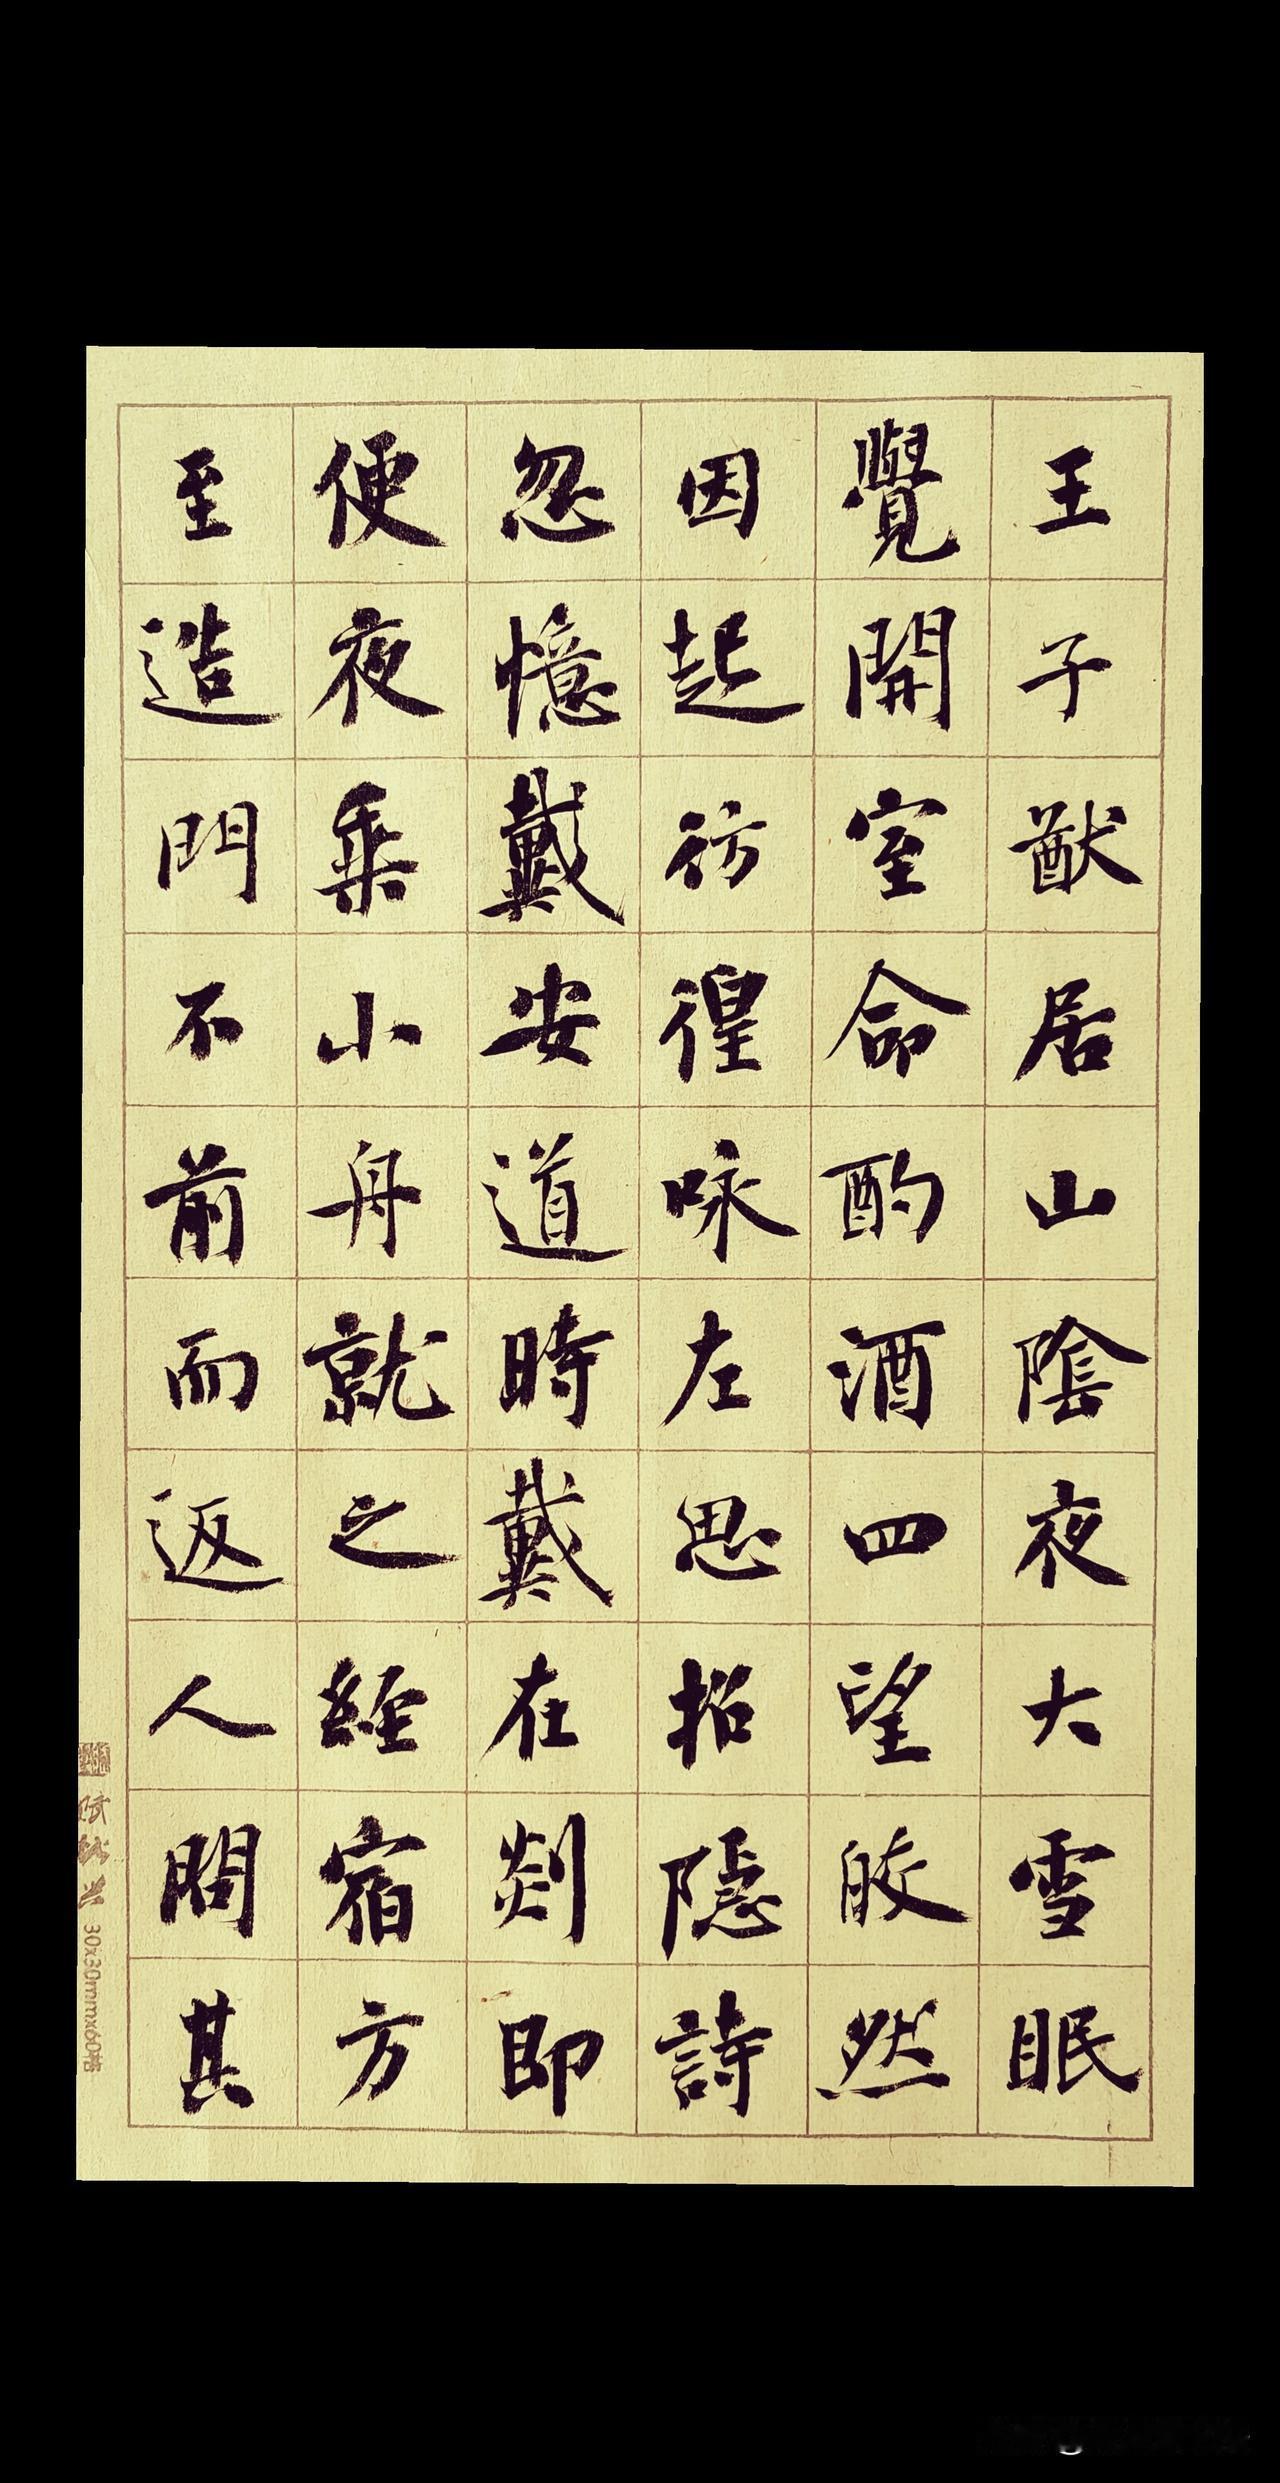 王子猷居山陰夜大雪眠
覺開室命酌酒四望皎然
因起彷徨咏左思招隱詩
忽憶戴安道時戴在剡即
便夜乗小舟就之經宿方
至造門不前而返人問其
30x30mmx60格